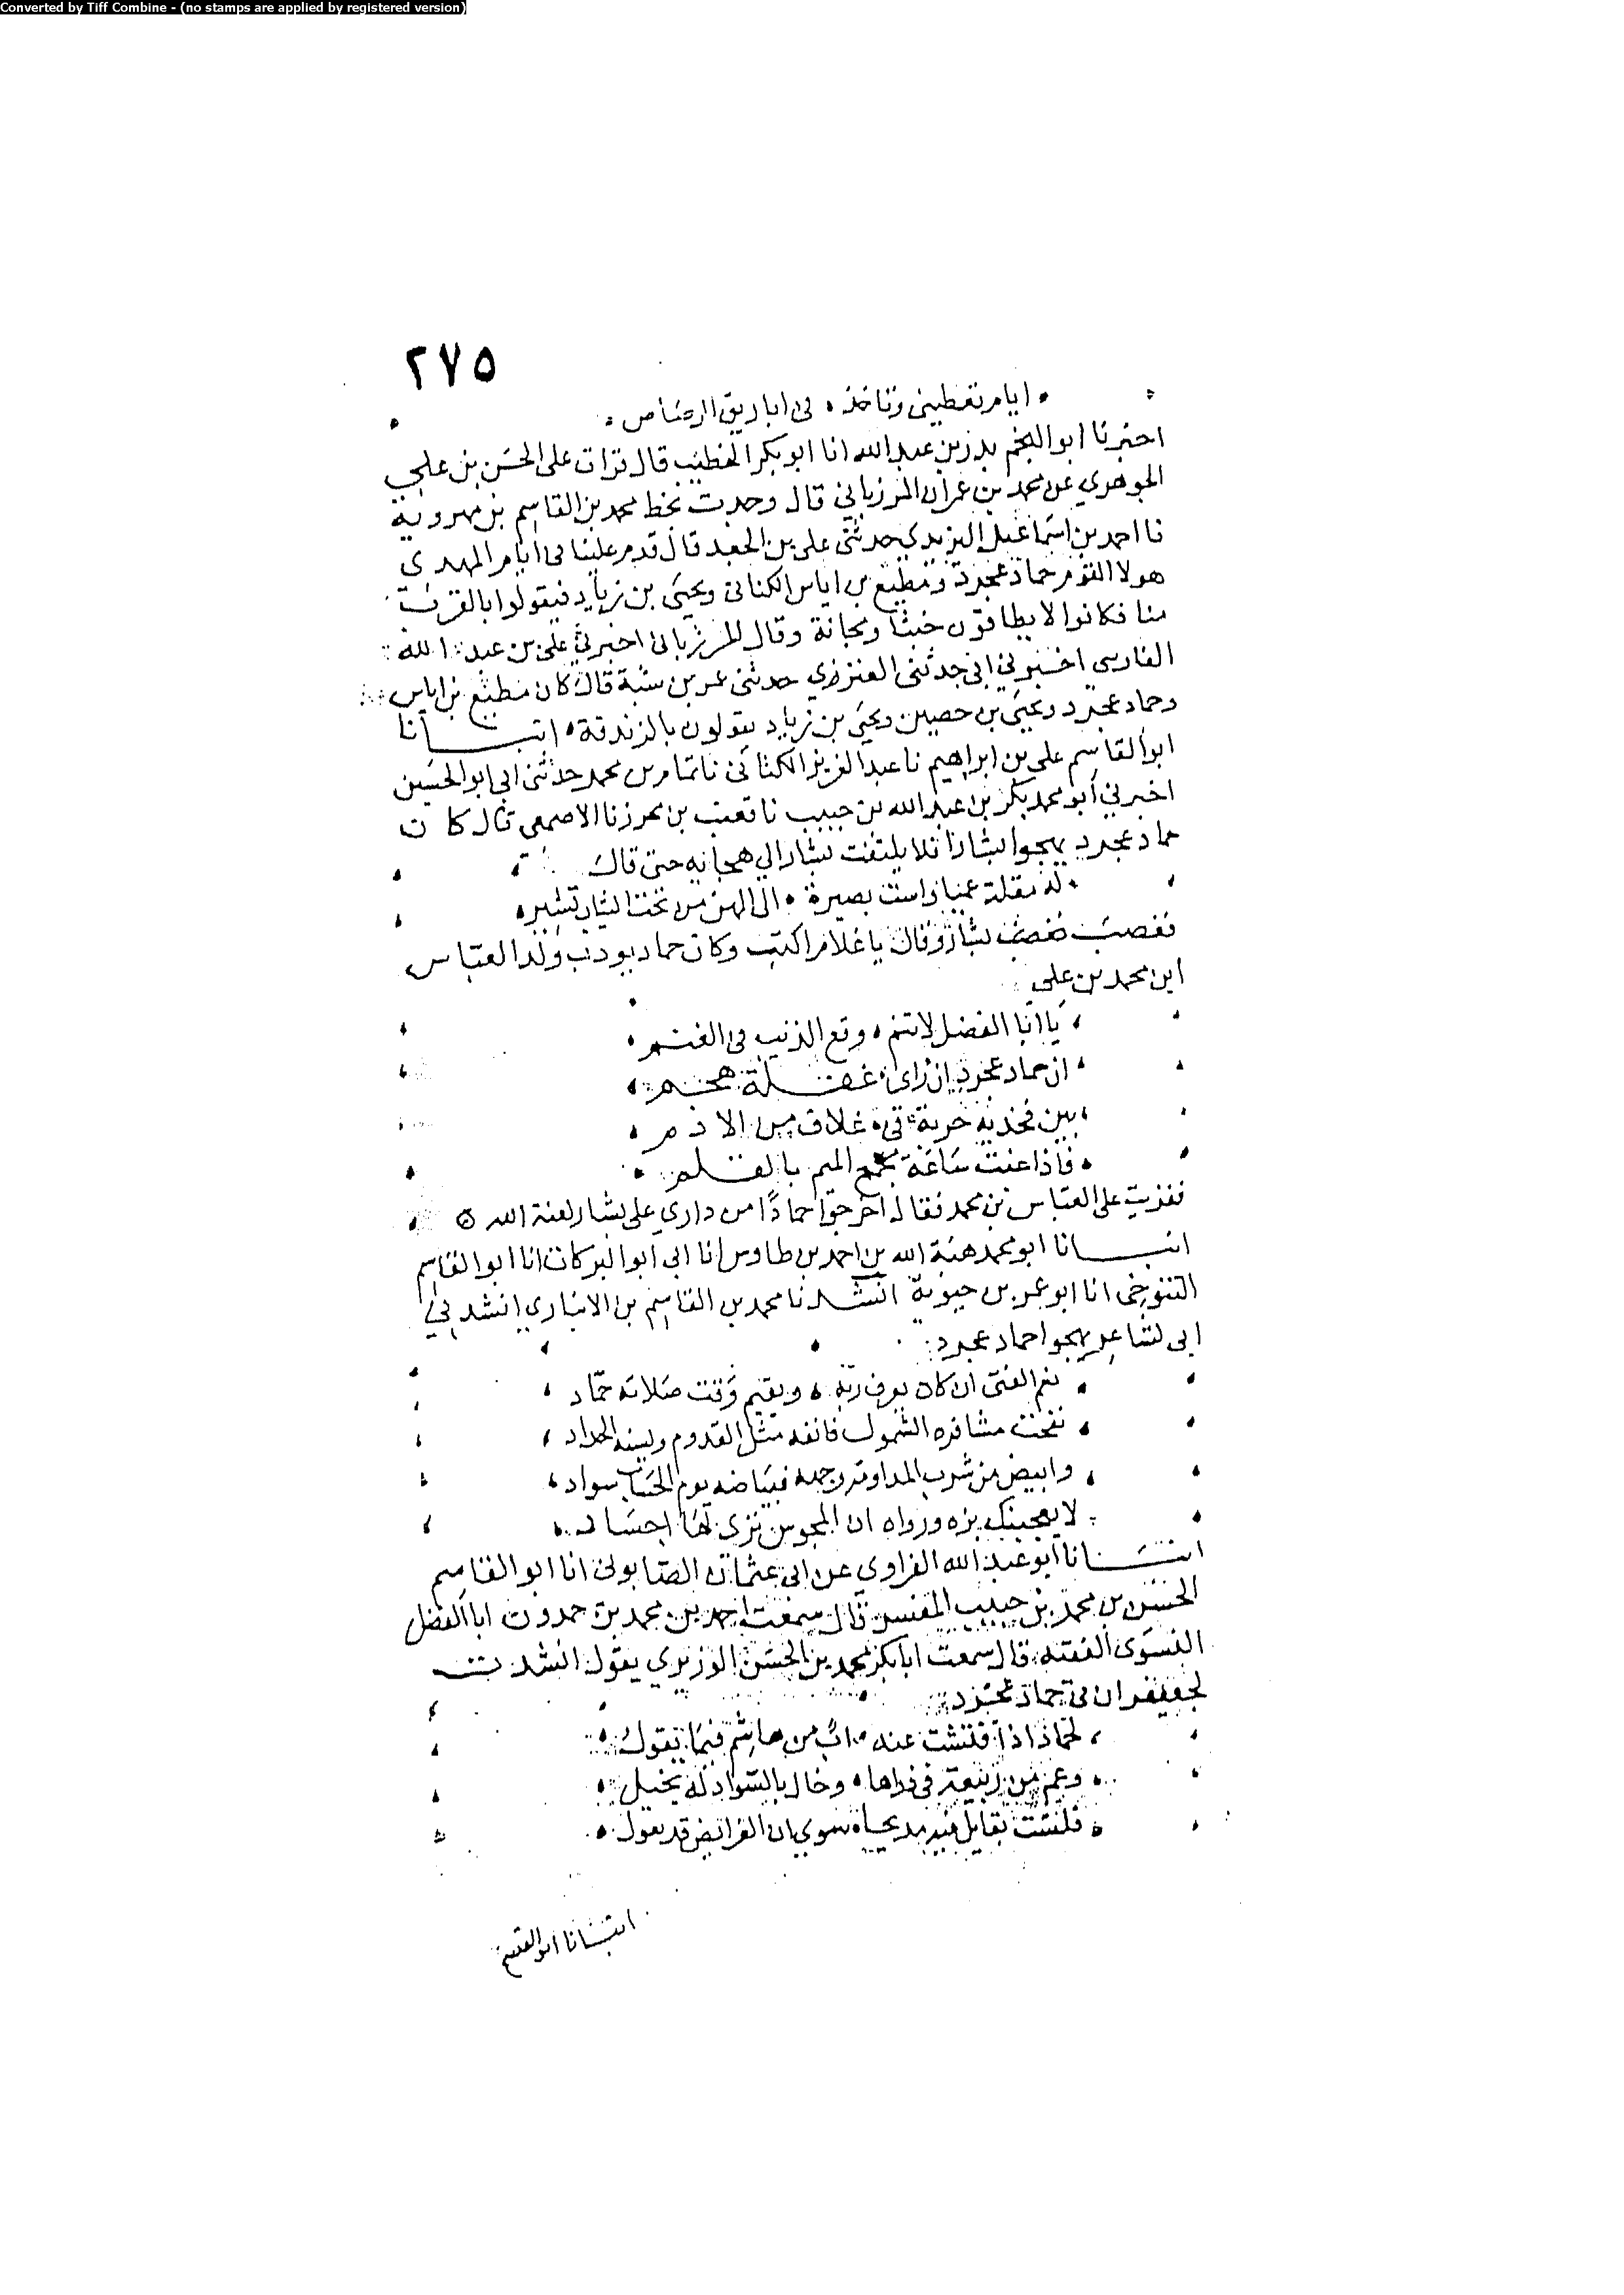 Converted by Tiff Combine - (no stamps are applied by registered version)
٢٧٥
ايام تعطيني وتاخذ في اباريق الرصاص
اخبرنا ابو النجم بدر بن عبد الله انا ابو بكر الخطيب قال قرات على الحسن بن علي
الجوهري عن محمد بن عمران المرزباني قال وجدت بخط محمد بن القاسم بن مهروية
نا احمد بن اسماعيل اليزيدي حدثني علي بن الجعد قال قدم علينا في ايام المهدي
هولا القوم حماد عجرد ومطيع بن اياس الكناني ويحيى بن زياد فيقولوا بالقرب
منا فكانوا لا يطاقون خبثا ومجانة وقال المرزباني اخبرني علي بن عبد الله
الفارسي اخبرني ابي حدثني العنزي حدثني عمر بن شبة قال كان مطيع بن اياس
وحماد عجرد ويحيى بن حصين ويحيى بن زياد يقولون بالزندقة انبانا
ابو القاسم علي بن ابراهيم نا عبد العزيز الكتاني نا تمام بن محمد حدثني ابي ابو الحسين
اخبرني ابو محمد بكر بن عبد الله بن حبيب نا قعنب بن محرز نا الاصمعي قال كان
حماد عجرد يهجوا بشارا فلا يلتفت بشار الي هجايه حتى قال
له مقلة عميا واست بصيرة الى الاير من تحت الثياب تشير
فغضب بشار وقال يا غلام اكتب وكان حماد يودب ولد العباس
ابن محمد بن علي
يا ابا الفضل لا تنم وقع الذئب في الغنم
ان حماد عجرد ان راى غفلة هجم
بين فخذيه حربة في غلاف من الادم
فاذا عنت ساعة مجمج الميم بالقلم
فقريت على العباس بن محمد فقال اخرجوا حمادا من داري على بشار لعنة الله
انبانا ابو محمد هبة الله بن احمد بن طاوس انا ابي ابو البركات انا ابو القاسم
التنوخي انا ابو عمر بن حيوية انشدنا محمد بن القاسم بن الانباري انشدني
ابي لشاعر يهجوا حماد عجرد
نعم الفتى ان كان يعرف ربه ويقيم وقت صلاته حماد
نفخت مشافره الشمول فانفه مثل القدوم يسنه الحداد
وابيض من شرب المدامة وجهه فبياضه يوم الحساب سواد
لا يعجبنك بزه ورواه ان المجوس ترى لها اجساد
انبانا ابو عبد الله الفراوي عن ابي عثمان الصابوني انا ابو القاسم
الحسن بن محمد بن حبيب المفسر قال سمعت احمد بن محمد بن حمدون ابا الفضل
النسوى الفقيه قال سمعت ابا بكر محمد بن الحسن الوزيري يقول انشدت
لجعيفران في حماد عجرد
لحماد اذا فتشت عنه اب من هاشم فيما يقول
وعم من ربيعة في ذراها وخال بالسواد له نخيل
فلست بقايل فيه مديحا سوى ان الفرائض قد تعول
انبانا ابو القسم